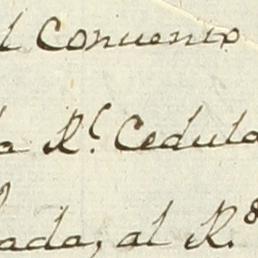 l Convento
la Rl. Cedula
lada, al R.s